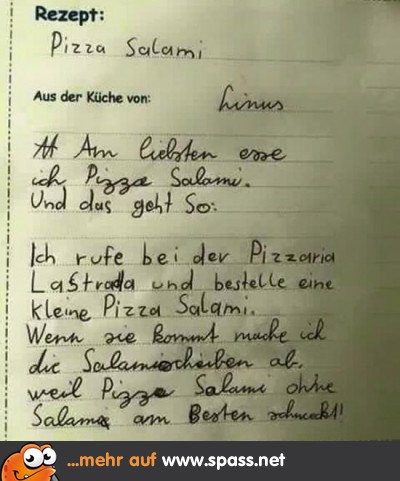 Rezept:
Pizza Salami
Aus der Küche von:
Linus
Am liebsten esse
ich Pizza Salami.
Und das geht so:
Ich rufe bei der Pizzaria
LaStrada und bestelle eine
kleine Pizza Salami.
Wenn sie kommt mache ich
die Salamischeiben ab,
weil Pizza Salami ohne
Salami am Besten schmeckt!
...mehr auf www.spass.net